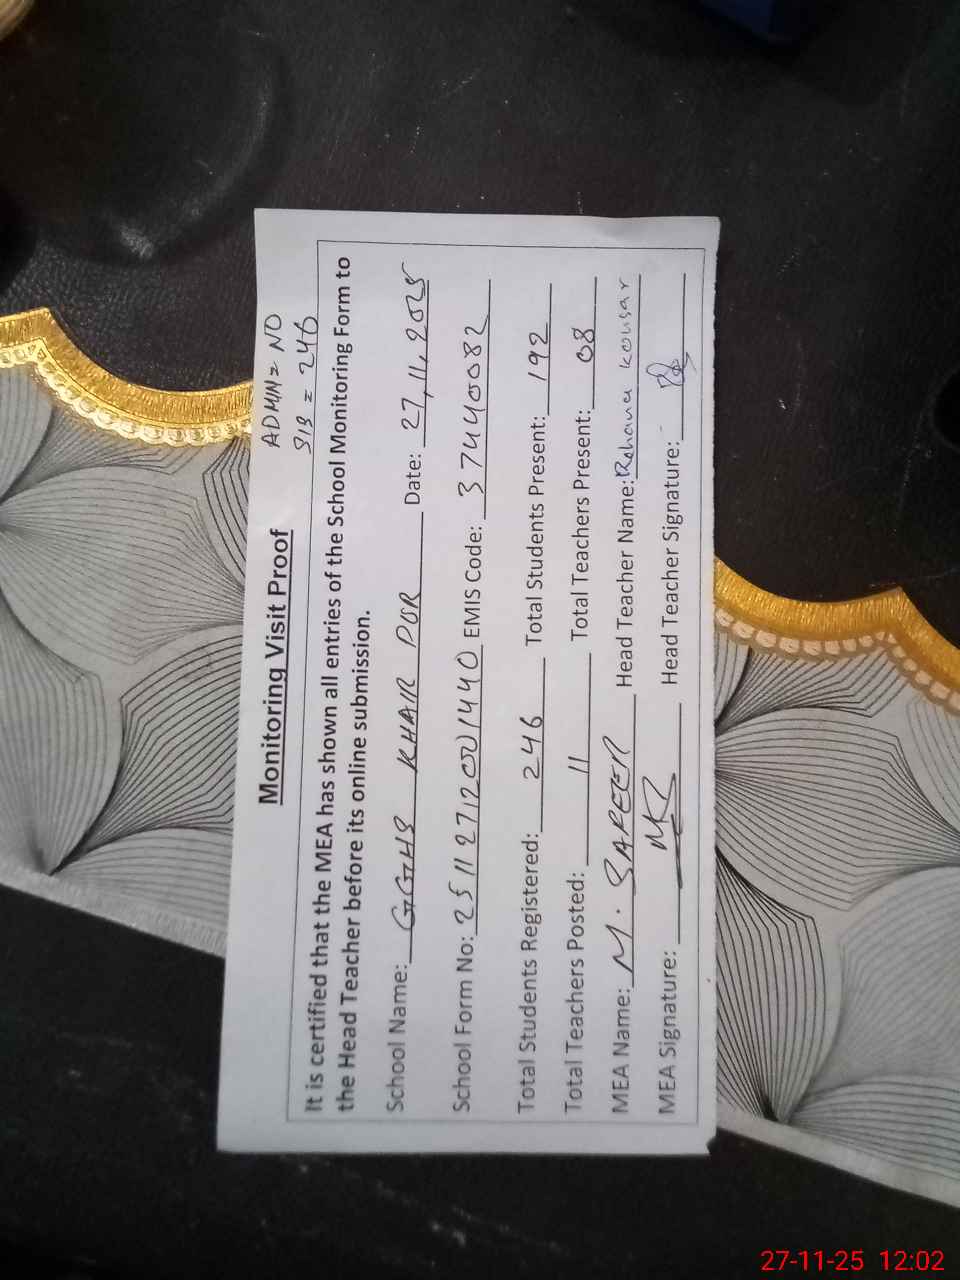 ADMN = NO
SIS = 246
Monitoring Visit Proof
It is certified that the MEA has shown all entries of the School Monitoring Form to
the Head Teacher before its online submission.
School Name: GGHS KHAIR PUR Date: 27,11,2025
School Form No: 25112712001440 EMIS Code: 37440082
Total Students Registered: 246 Total Students Present: 192
Total Teachers Posted: 11 Total Teachers Present: 08
MEA Name: M. SAREER Head Teacher Name: Rehana kousar
MEA Signature: Head Teacher Signature:
27-11-25 12:02